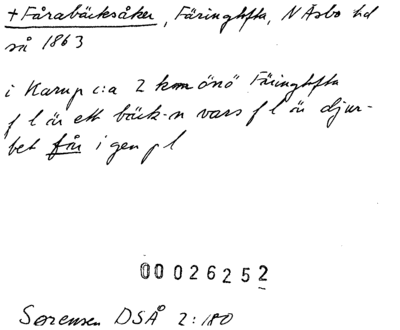 + Fårabäcksåker, Färingtofta, N Åsbo hd
så 1863
i Karup c:a 2 km önö Färingtofta
f l är ett bäck-n vars f l är djur-
bet får i gen pl
00026252
Sørensen DSÅ 2:180